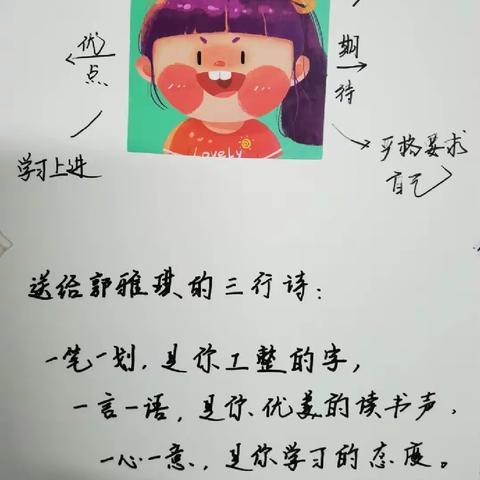 优点
期待
学习上进
严格要求
自己
Lovely
送给郭雅琪的三行诗：
一笔一划，是你工整的字，
一言一语，是你优美的读书声，
一心一意，是你学习的态度。